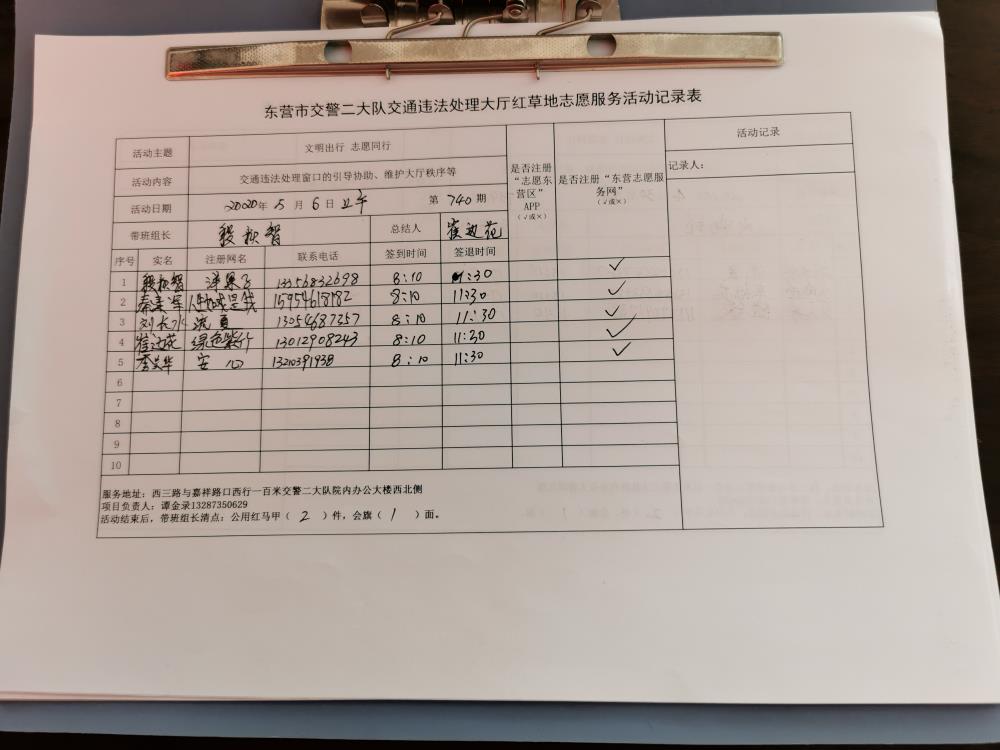 东营市交警二大队交通违法处理大厅红草地志愿服务活动记录表
活动主题 文明出行 志愿同行
活动内容 交通违法处理窗口的引导协助、维护大厅秩序等
活动日期 2020年 5 月 6 日 上午 第 740 期
带班组长 总结人
是否注册“志愿东营区”APP（√或×）
是否注册“东营志愿服务网”（√或×）
活动记录
记录人：
序号 实名 注册网名 联系电话 签到时间 签退时间
1 13356832698 8:10 11:30 ✓
2 15954618182 8:10 11:30 ✓
3 刘长水 13054687357 8:10 11:30 ✓
4 13012908243 8:10 11:30 ✓
5 安心 13210391938 8:10 11:30 ✓
6
7
8
9
10
服务地址：西三路与嘉祥路口西行一百米交警二大队院内办公大楼西北侧
项目负责人：谭金录13287350629
活动结束后，带班组长清点：公用红马甲（ 2 ）件，会旗（ 1 ）面。